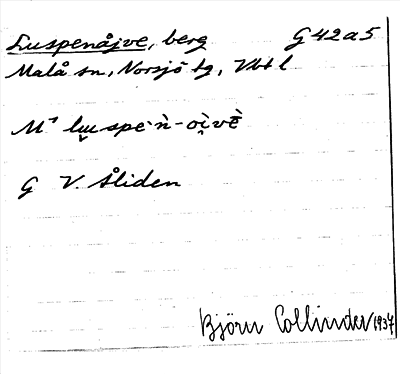 Luspenåjve, berg G42a5
Malå sn, Norsjö tg, Vbt l
M⁊ lu̬spe·ǹ-oi̯̇vḕ
G V. Åliden
Björn Collinder 1937